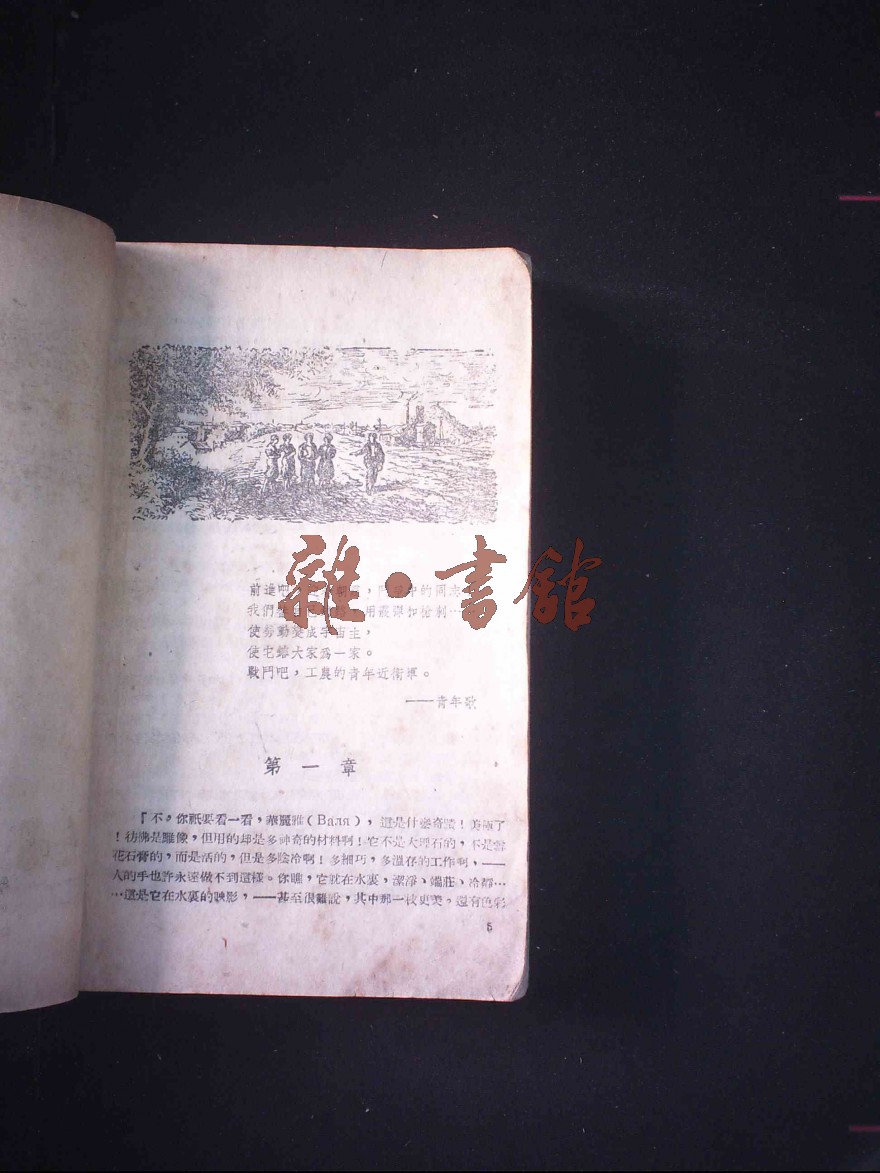 雜·書館
前進吧，，的同志
我們用和槍刺…
使勞動變成宇宙主，
使它鎔大家爲一家。
戰鬥吧，工農的青年近衛軍。
——青年歌
第一章
『不。你祇要看一看，華麗雅（Валя），這是什麼奇蹟！美極了
！彷彿是雕像，但用的却是多神奇的材料啊！它不是大理石的，不是雪
花石膏的，而是活的，但是多陰冷啊！多細巧，多溫存的工作啊，——
人的手也許永遠做不到這樣。你瞧，它就在水裏，潔淨、端莊、冷靜……
…這是它在水裏的映影，——甚至很難說，其中那一枝更美。還有色彩
5